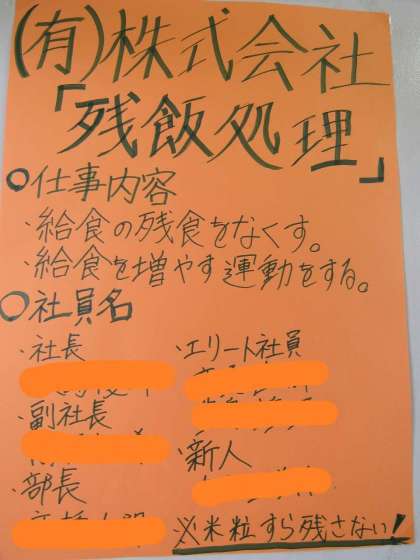 (有)株式会社
「残飯処理」
○仕事内容
・給食の残食をなくす。
・給食を増やす運動をする。
○社員名
・社長
・副社長
・部長
・エリート社員
・新人
※米粒すら残さない!